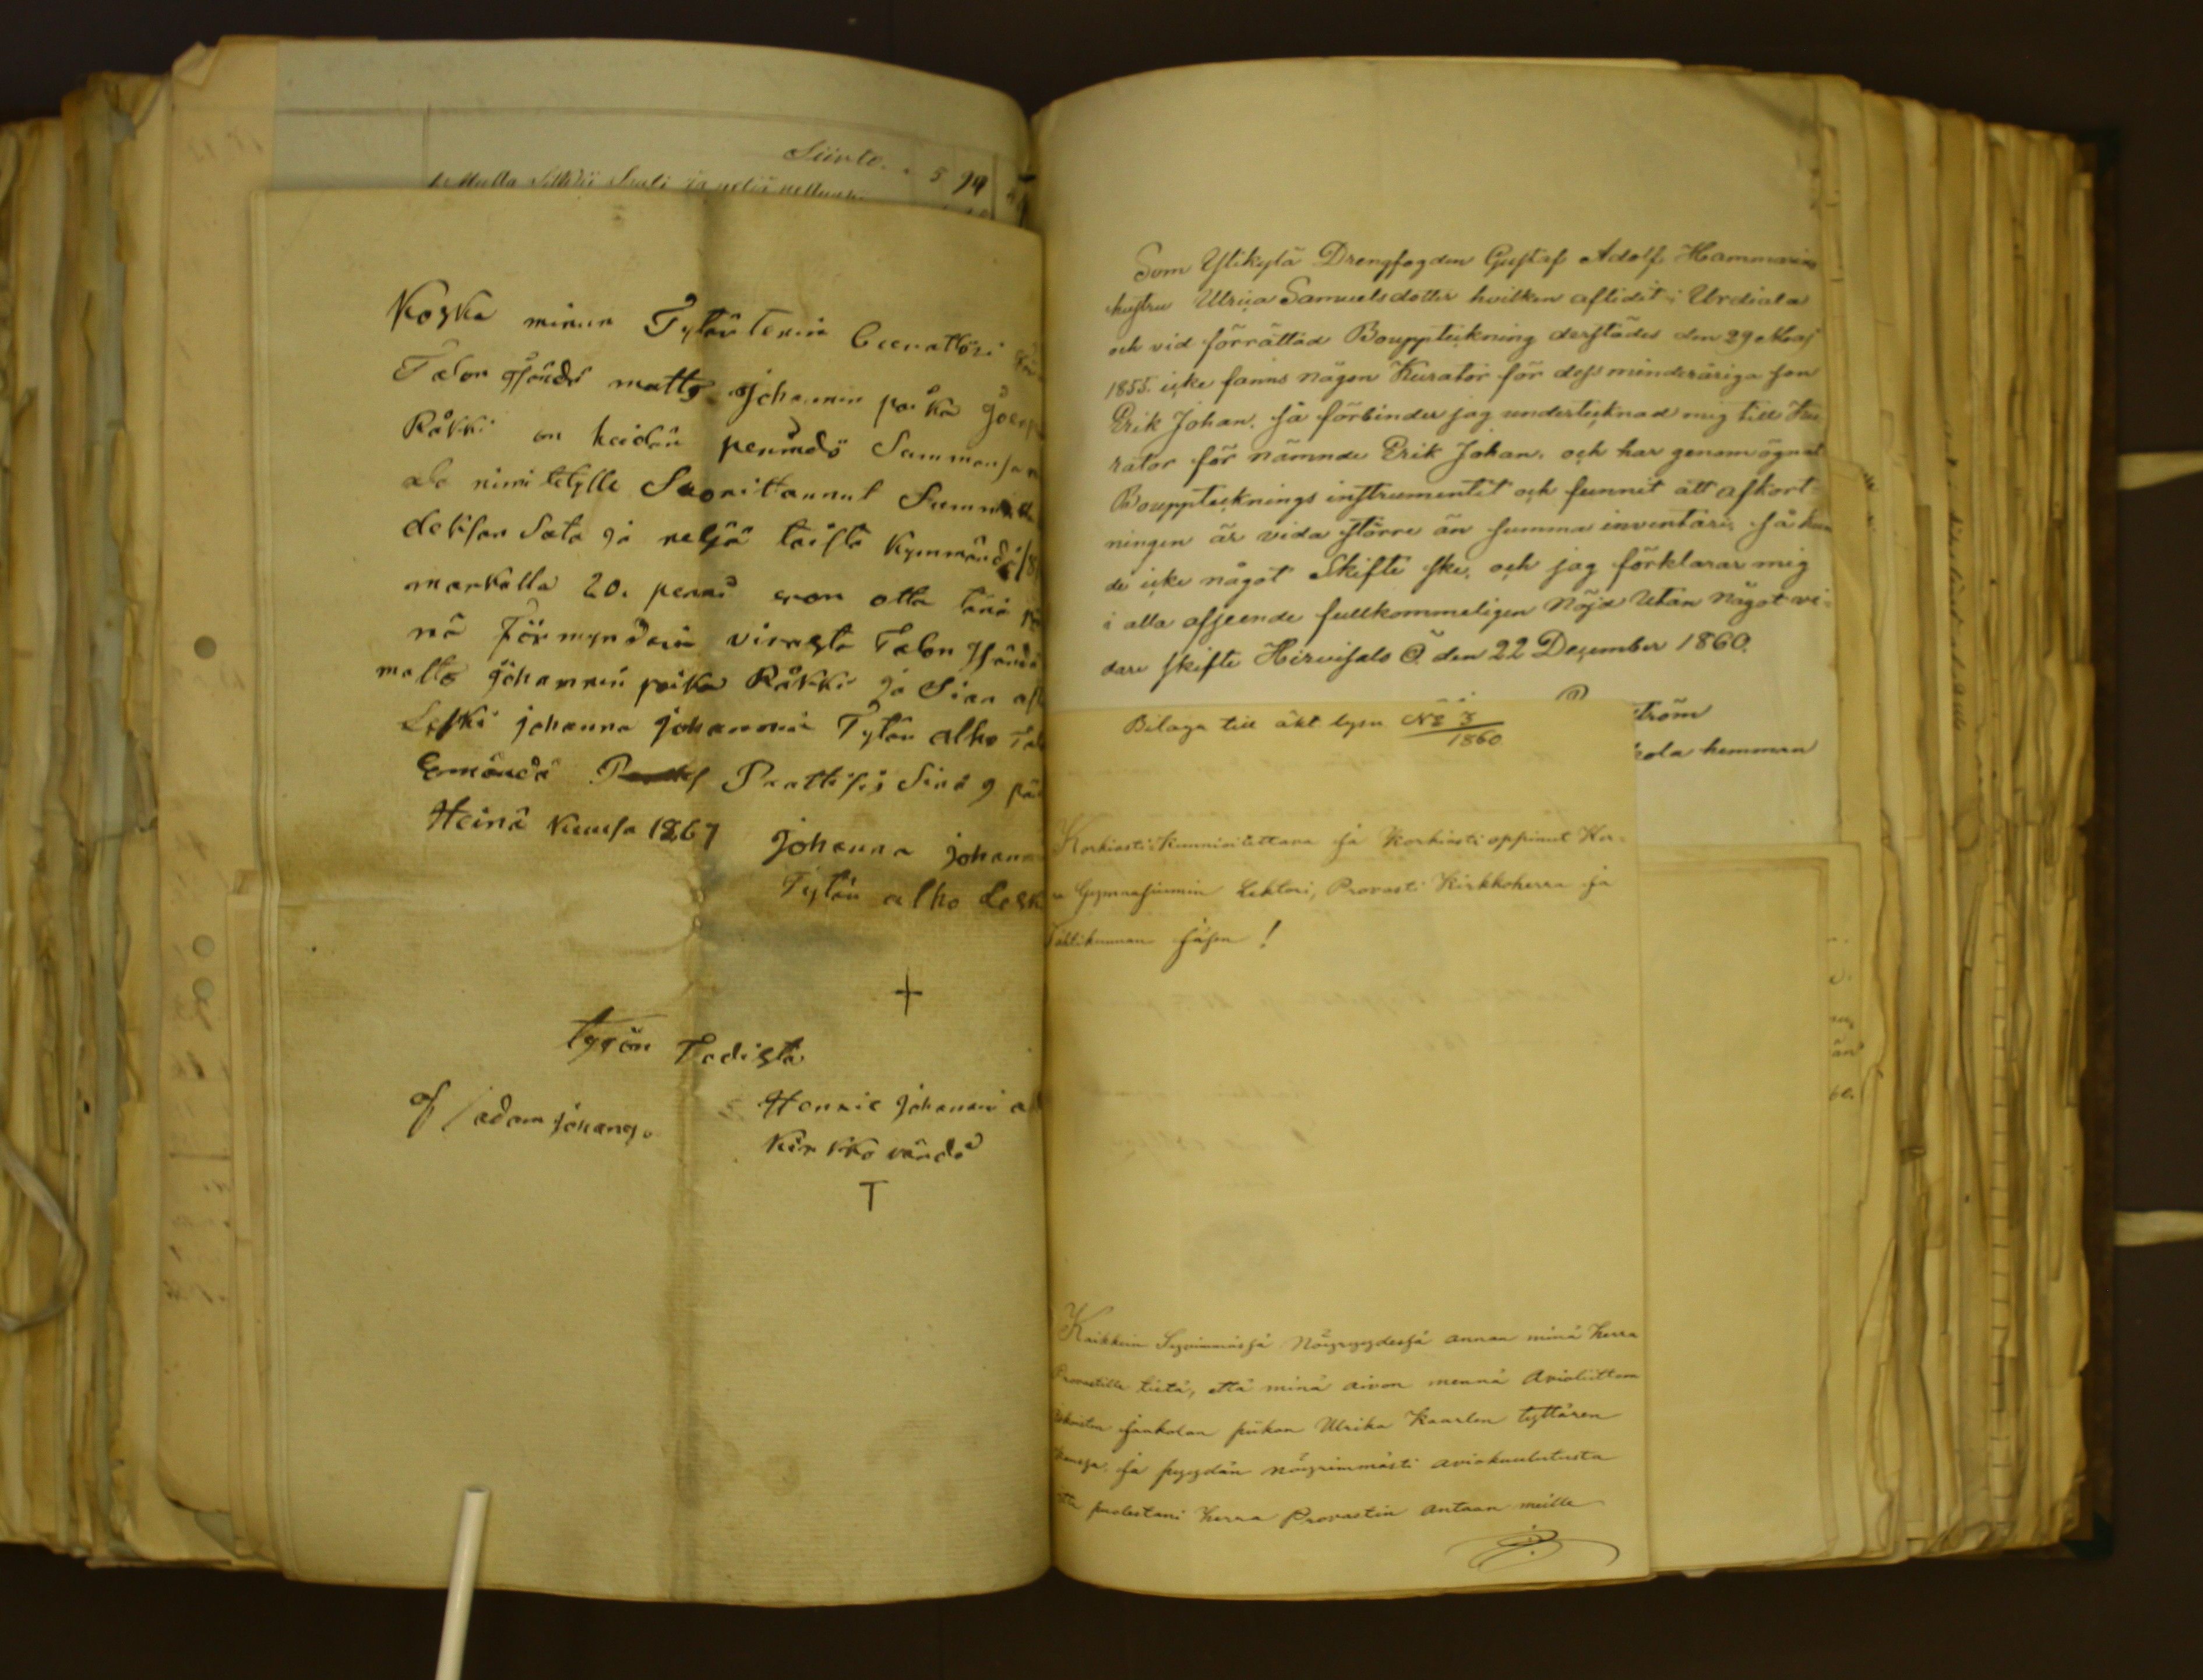 Siirto. 5 94
Koska minun Tytärtenin
Talon Isändä matts Johannin poika
Råkki on heidän perindö
ala nimitetylle Suorittannut Summa
deksan Sata ja neljä toista kymmändä
markalla 20. penniä eron otta tänä
nä Förmyndärin virasta Talon Isändä
matts Johannin poika Råkki ja Sian
Leski johanna johannin Tytär alho
Emändä Prattisis Sinä 9
Heinä kuussa 1867
Johanna johann
Tytär alho Lesk
+
tygön Todista
adam johans.
Hennic Johanni
Kirkko värdi
T
Som Ylikylä Drengfogden Gustaf Adolf Hammarins
hustru Ulrica Samuelsdotter hvilken aflidit i Urdiala
och vid förrättad Bouppteckning derstädes den 29 Maj
1855. icke fanns någon Kurator för dess minderåriga son
Erik Johan. så förbinder jag undertecknad mig till Ku
rator för nämnde Erik Johan. och har genomögnat
Boupptecknings instrumentet och funnit att afkort-
ningen är vida större än summa inventari. så kun
de icke något Skifte ske. och jag förklarar mig
i alla afseende fullkommeligen Nöjd Utan Något vi-
dare skifte Hirvisalo Ö. den 22 December 1860.
tröm
kola hemman
Bilaga till äkt. lysn № 3
1860
Korkiasti Kunnioitettava ja Korkiasti oppinut Her-
ra Gymnasiumin Lektori, Provasti Kirkkoherra ja
Tähtikunnan jäsen!
Kaikkein Syvimmässä Nöyryydessä annan minä Herra
Provastille tietä, että minä aivon mennä Avioliittoon
Jaakolan piikan Ulrika Kaarlen tyttären
kanssa. ja pyydän nöyrimmästi aviokuulutusta
että puolestani Herra Provastin antaan meille